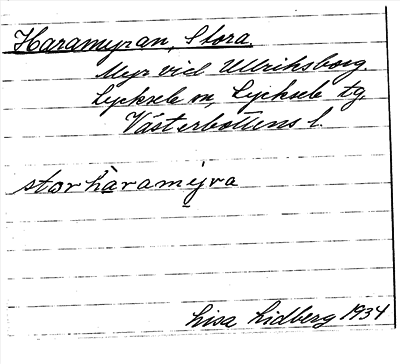 Haramyran, Stora.
Myr vid Ullriksborg.
Lycksele sn, Lycksele tg.
Västerbottens l.
storhàramýra
Lisa Lidberg 1934